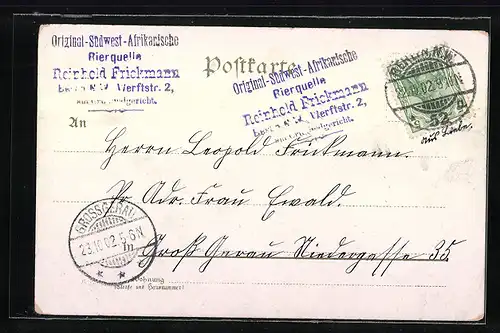 Original-Südwest-Afrikanische
Bierquelle
Reinhold Frickmann
Berlin N.W. Werftstr. 2,
Postkarte
Original-Südwest-Afrikanische
Bierquelle
Reinhold Frickmann
Berlin N.W. Werftstr. 2,
BERLIN N.W.
02.9
52
An
Herrn Leopold Frickmann.
Pr. Adr. Frau Ewald.
GROSSGERAU
23.10.02.5-6N
Groß Gerau Niedergasse 35.
In
Wohnung
(Straße und Hausnummer)